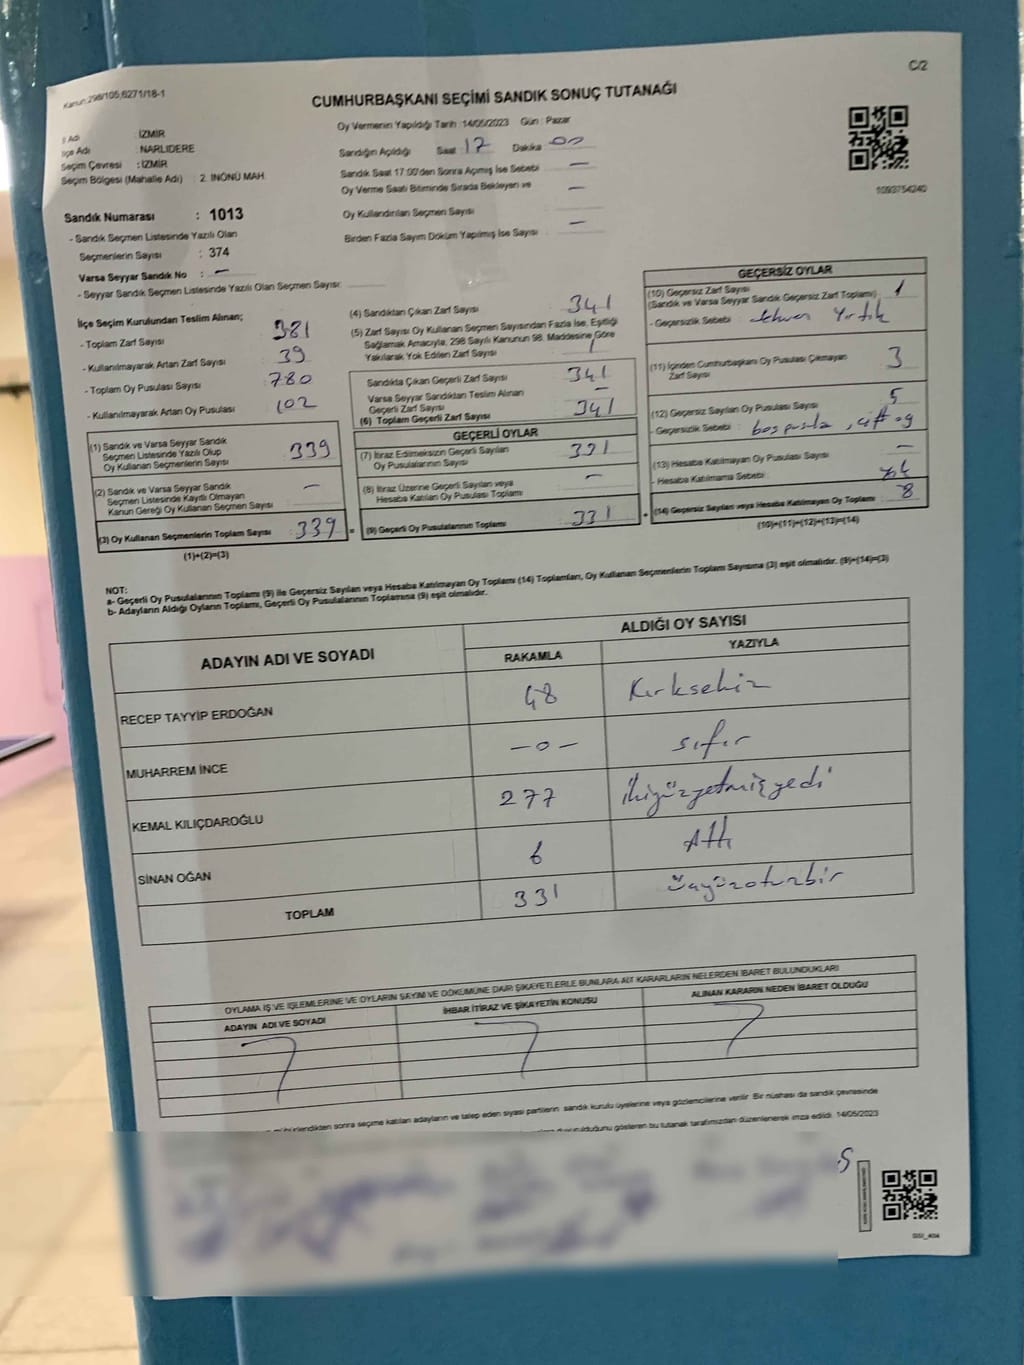 C/2
Kanun:298/105,6271/18-1
CUMHURBAŞKANI SEÇİMİ SANDIK SONUÇ TUTANAĞI
Oy Vermenin Yapıldığı Tarih :14/05/2023 Gün : Pazar
İl Adı : İZMİR
İlçe Adı : NARLIDERE
Seçim Çevresi : İZMİR
Seçim Bölgesi (Mahalle Adı) : 2. İNÖNÜ MAH.
Sandığın Açıldığı Saat 17 Dakika 00
Sandık Saat 17:00'den Sonra Açımış İse Sebebi —
Oy Verme Saati Bitiminde Sırada Bekleyen ve —
Oy Kullandırılan Seçmen Sayısı
Birden Fazla Sayım Döküm Yapılmış İse Sayısı —
1093754240
Sandık Numarası : 1013
- Sandık Seçmen Listesinde Yazılı Olan
Seçmenlerin Sayısı : 374
Varsa Seyyar Sandık No : —
- Seyyar Sandık Seçmen Listesinde Yazılı Olan Seçmen Sayısı:
İlçe Seçim Kurulundan Teslim Alınan;
- Toplam Zarf Sayısı 381
- Kullanılmayarak Artan Zarf Sayısı 39
- Toplam Oy Pusulası Sayısı 780
- Kullanılmayarak Artan Oy Pusulası 102
(1) Sandık ve Varsa Seyyar Sandık
Seçmen Listesinde Yazılı Olup
Oy Kullanan Seçmenlerin Sayısı 339
(2) Sandık ve Varsa Seyyar Sandık
Seçmen Listesinde Kayıtlı Olmayan
Kanun Gereği Oy Kullanan Seçmen Sayısı —
(3) Oy Kullanan Seçmenlerin Toplam Sayısı 339 =
(1)+(2)=(3)
(4) Sandıktan Çıkan Zarf Sayısı 341
(5) Zarf Sayısı Oy Kullanan Seçmen Sayısından Fazla İse, Eşitliği
Sağlamak Amacıyla, 298 Sayılı Kanunun 98. Maddesine Göre
Yakılarak Yok Edilen Zarf Sayısı
Sandıkta Çıkan Geçerli Zarf Sayısı 341
Varsa Seyyar Sandıktan Teslim Alınan
Geçerli Zarf Sayısı —
(6) Toplam Geçerli Zarf Sayısı 341
GEÇERLİ OYLAR
(7) İtiraz Edilmeksizin Geçerli Sayılan
Oy Pusulalarının Sayısı 331
(8) İtiraz Üzerine Geçerli Sayılan veya
Hesaba Katılan Oy Pusulası Toplamı —
(9) Geçerli Oy Pusulalarının Toplamı 331 +
GEÇERSİZ OYLAR
(10) Geçersiz Zarf Sayısı
(Sandık ve Varsa Seyyar Sandık Geçersiz Zarf Toplamı) 1
- Geçersizlik Sebebi : Yırtık
(11) İçinden Cumhurbaşkanı Oy Pusulası Çıkmayan
Zarf Sayısı 3
(12) Geçersiz Sayılan Oy Pusulası Sayısı 5
- Geçersizlik Sebebi : boş pusula, çift oy
(13) Hesaba Katılmayan Oy Pusulası Sayısı —
- Hesaba Katılmama Sebebi :
(14) Geçersiz Sayılan veya Hesaba Katılmayan Oy Toplamı 8
(10)+(11)+(12)+(13)=(14)
NOT:
a- Geçerli Oy Pusulalarının Toplamı (9) ile Geçersiz Sayılan veya Hesaba Katılmayan Oy Toplamı (14) Toplamları, Oy Kullanan Seçmenlerin Toplam Sayısına (3) eşit olmalıdır. (9)+(14)=(3)
b- Adayların Aldığı Oyların Toplamı, Geçerli Oy Pusulalarının Toplamına (9) eşit olmalıdır.
ADAYIN ADI VE SOYADI
ALDIĞI OY SAYISI
RAKAMLA YAZIYLA
RECEP TAYYİP ERDOĞAN 48 Kırksekiz
MUHARREM İNCE —0— sıfır
KEMAL KILIÇDAROĞLU 277 İkiyüzyetmişyedi
SİNAN OĞAN 6 Altı
TOPLAM 331 üçyüzotuzbir
OYLAMA İŞ VE İŞLEMLERİNE VE OYLARIN SAYIM VE DÖKÜMÜNE DAİR ŞİKAYETLERLE BUNLARA AİT KARARLARIN NELERDEN İBARET BULUNDUKLARI
ADAYIN ADI VE SOYADI
İHBAR İTİRAZ VE ŞİKAYETİN KONUSU
ALINAN KARARIN NEDEN İBARET OLDUĞU
sonra seçime katılan adayların ve talep eden siyasi partilerin sandık kurulu üyelerine veya gözlemcilerine verilir. Bir nüshası da sandık çevresinde
olduğunu gösteren bu tutanak tarafımızdan düzenlenerek imza edildi. 14/05/2023